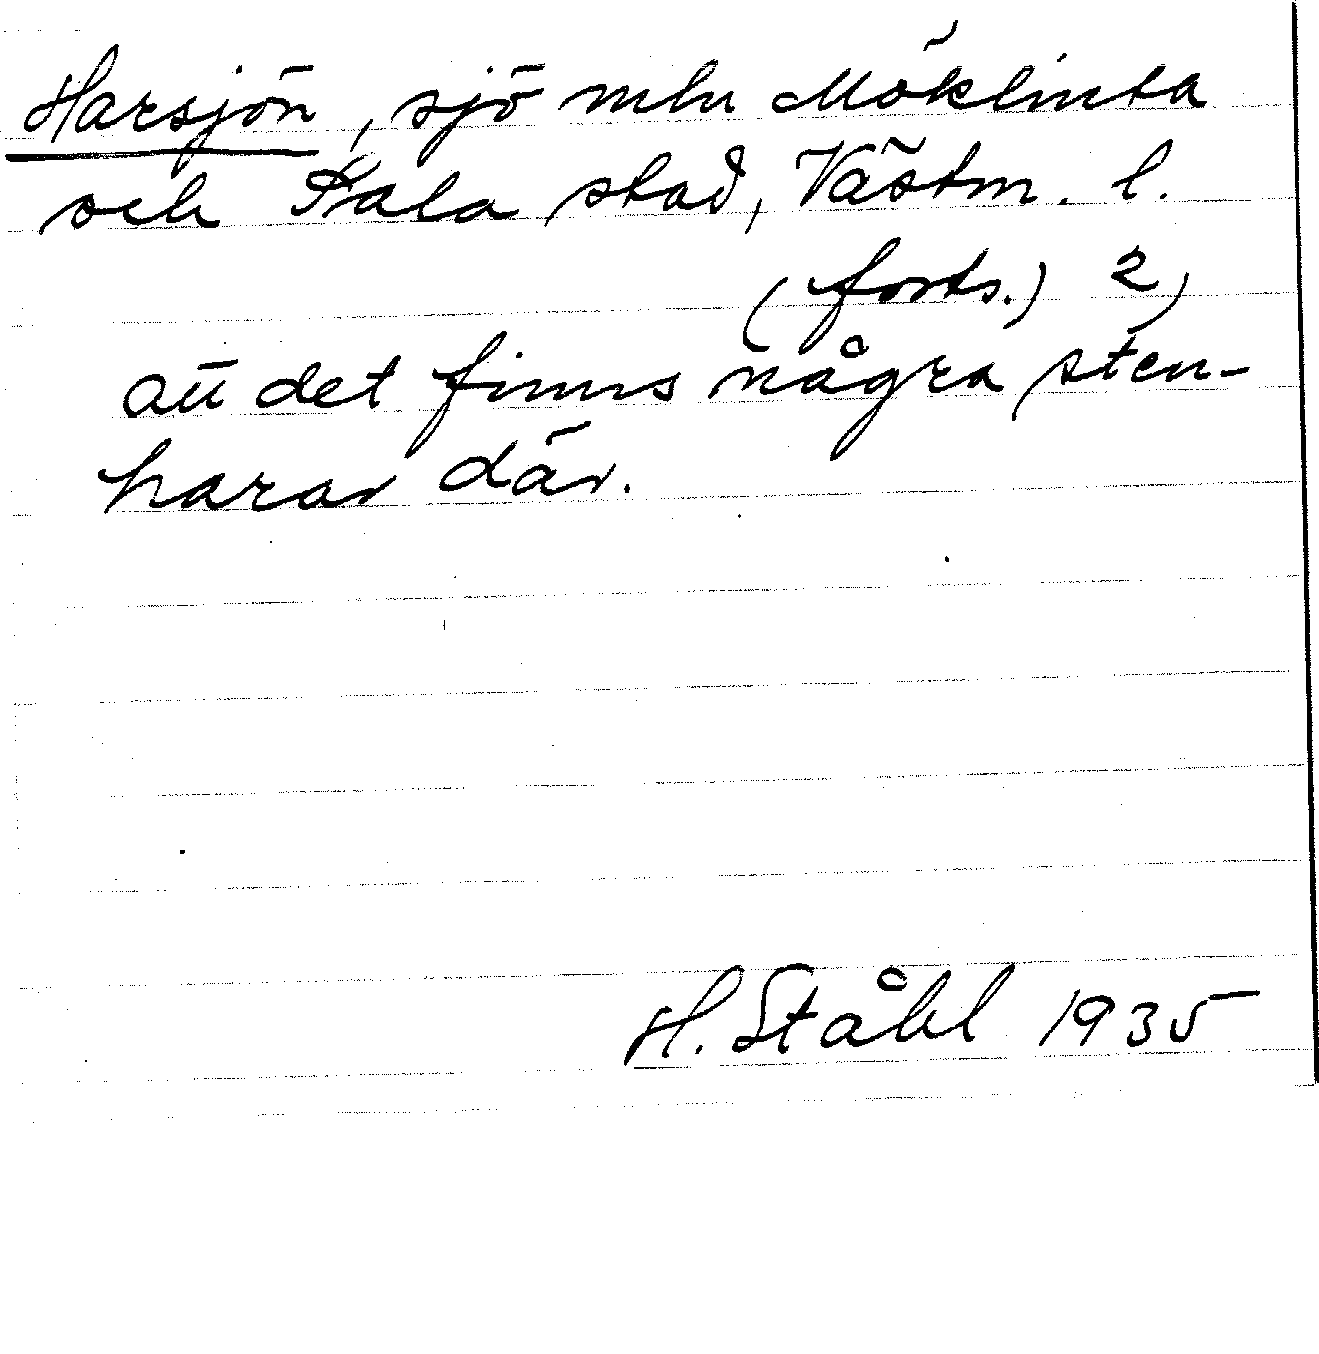 Harsjön, sjö mln Möklinta
och Sala stad, Västm. l.
(forts.) 2)
att det finns några sten-
harar där.
H. Ståhl 1935